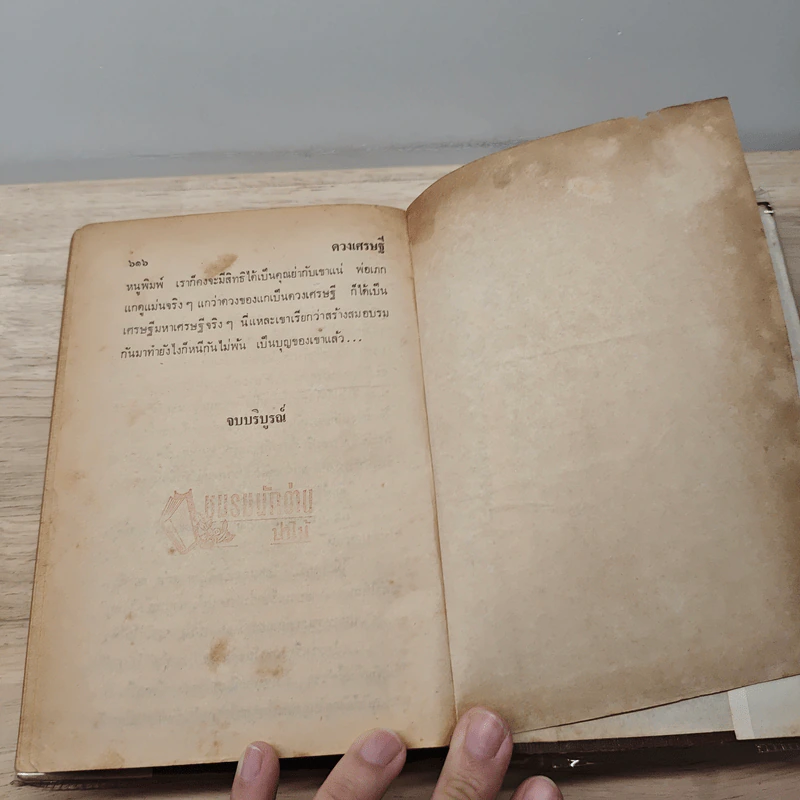 ๖๑๖ ดวงเศรษฐี
หนูพิมพ์ เราก็คงจะมีสิทธิได้เป็นคุณย่ากับเขาแน่ พ่อเภก
แกดูแม่นจริง ๆ แกว่าดวงของแกเป็นดวงเศรษฐี ก็ได้เป็น
เศรษฐีมหาเศรษฐีจริง ๆ นี่แหละเขาเรียกว่าสร้างสมอบรม
กันมาทำยังไงก็หนีกันไม่พ้น เป็นบุญของเขาแล้ว...
จบบริบูรณ์